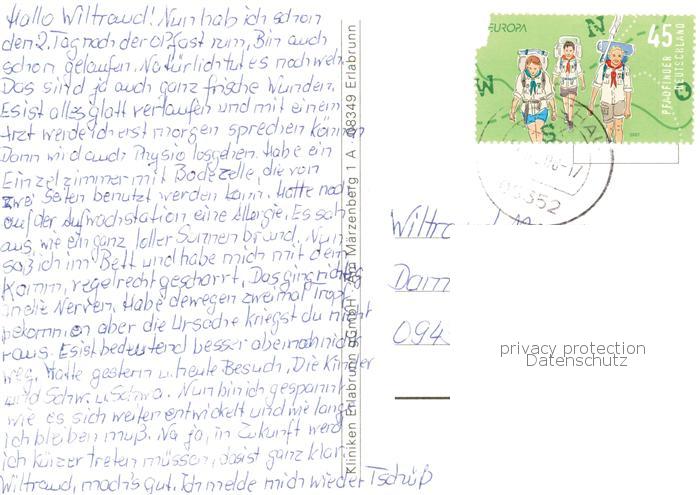 Hallo Wiltraud! Nun hab ich schon
den 2. Tag nach der OP. fast rum. Bin auch
schon gelaufen. Natürlich tut es noch weh.
Das sind ja auch ganz frische Wunden.
Es ist alles glatt verlaufen und mit einem
Arzt werde ich erst morgen sprechen können
Dann wird auch Physio losgehen. Habe ein
Einzelzimmer mit Badezelle, die von
zwei Seiten benutzt werden kann. Hatte noch
auf der Aufwachstation eine Allergie. Es sah
aus, wie ein ganz toller Sonnenbrand. Nun
saß ich im Bett und habe mich mit dem
Kamm, regelrecht gescharrt. Das ging richtig
an die Nerven. Habe dewegen zweimal Tropf
bekommen aber die Ursache kriegst du nicht
raus. Es ist bedeutend besser aber noch nicht
weg. Hatte gestern u. heute Besuch. Die Kinder
und Schw. u. Schwa. Nun bin ich gespannt
wie es sich weiter entwickelt und wie lange
ich bleiben muß. Na ja, in Zukunft werd
ich kürzer treten müssen, das ist ganz klar.
Wiltraud, mach's gut. Ich melde mich wieder Tschüß
Kliniken Erlabrunn gGmbH Am Märzenberg 1 A 08349 Erlabrunn
EUROPA
45
PFADFINDER
DEUTSCHLAND
N
W
S
2007
08352
Wiltra
Dam
094
privacy protection
Datenschutz